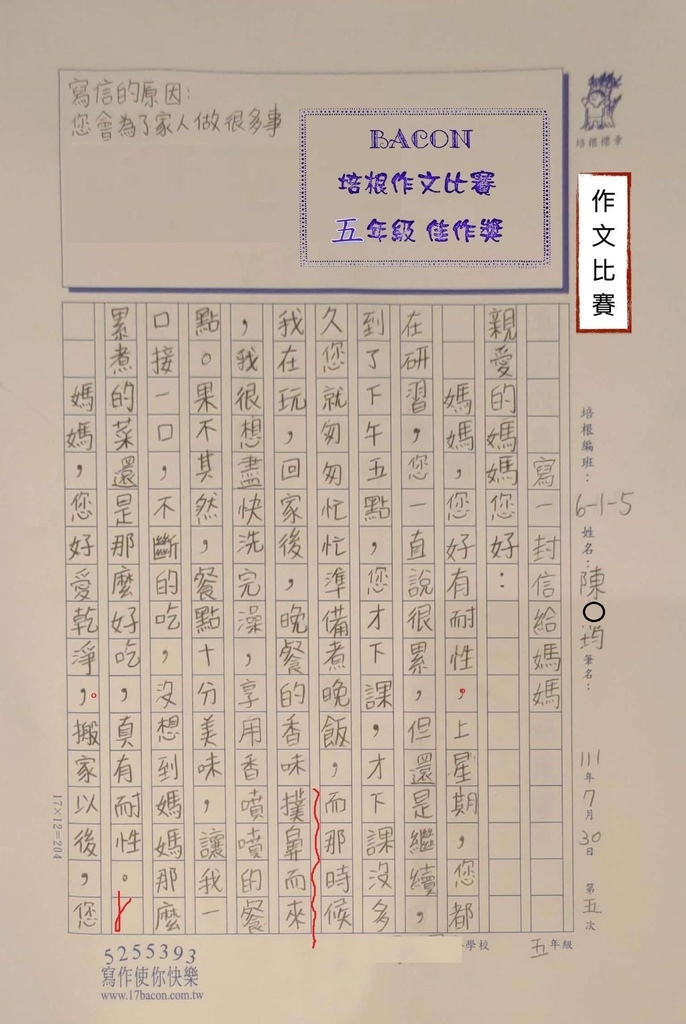 寫信的原因：
您會為了家人做很多事
BACON
培根作文比賽
五年級 佳作獎
培根標章
作文比賽
培根編班：6-1-5 姓名：陳○均 筆名： 111年7月30日 第五次
寫一封信給媽媽
親愛的媽媽您好：
媽媽，您好有耐性，上星期，您都
在研習，您一直說很累，但還是繼續，
到了下午五點，您才下課，才下課沒多
久您就匆匆忙忙準備煮晚飯，而那時候
我在玩，回家後，晚餐的香味撲鼻而來
，我很想盡快洗完澡，享用香噴噴的餐
點。果不其然，餐點十分美味，讓我一
口接一口，不斷的吃，沒想到媽媽那麼
累煮的菜還是那麼好吃，真有耐性。
媽媽，您好愛乾淨，。搬家以後，您
17×12=204
學校 五年級
5255393
寫作使你快樂
www.17bacon.com.tw